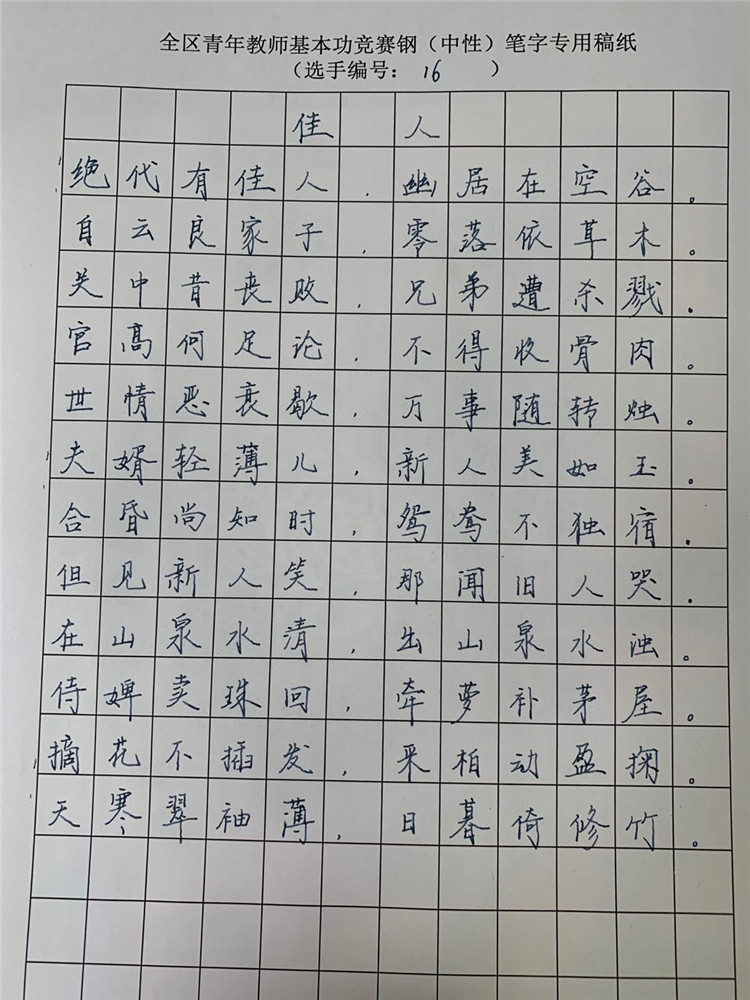 全区青年教师基本功竞赛钢（中性）笔字专用稿纸
（选手编号：16）
佳人
绝代有佳人，幽居在空谷。
自云良家子，零落依草木。
关中昔丧败，兄弟遭杀戮。
官高何足论，不得收骨肉。
世情恶衰歇，万事随转烛。
夫婿轻薄儿，新人美如玉。
合昏尚知时，鸳鸯不独宿。
但见新人笑，那闻旧人哭。
在山泉水清，出山泉水浊。
侍婢卖珠回，牵萝补茅屋。
摘花不插发，采柏动盈掬。
天寒翠袖薄，日暮倚修竹。